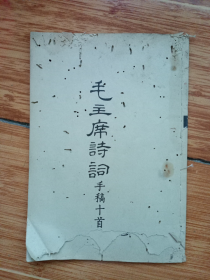 毛主席詩詞手稿十首